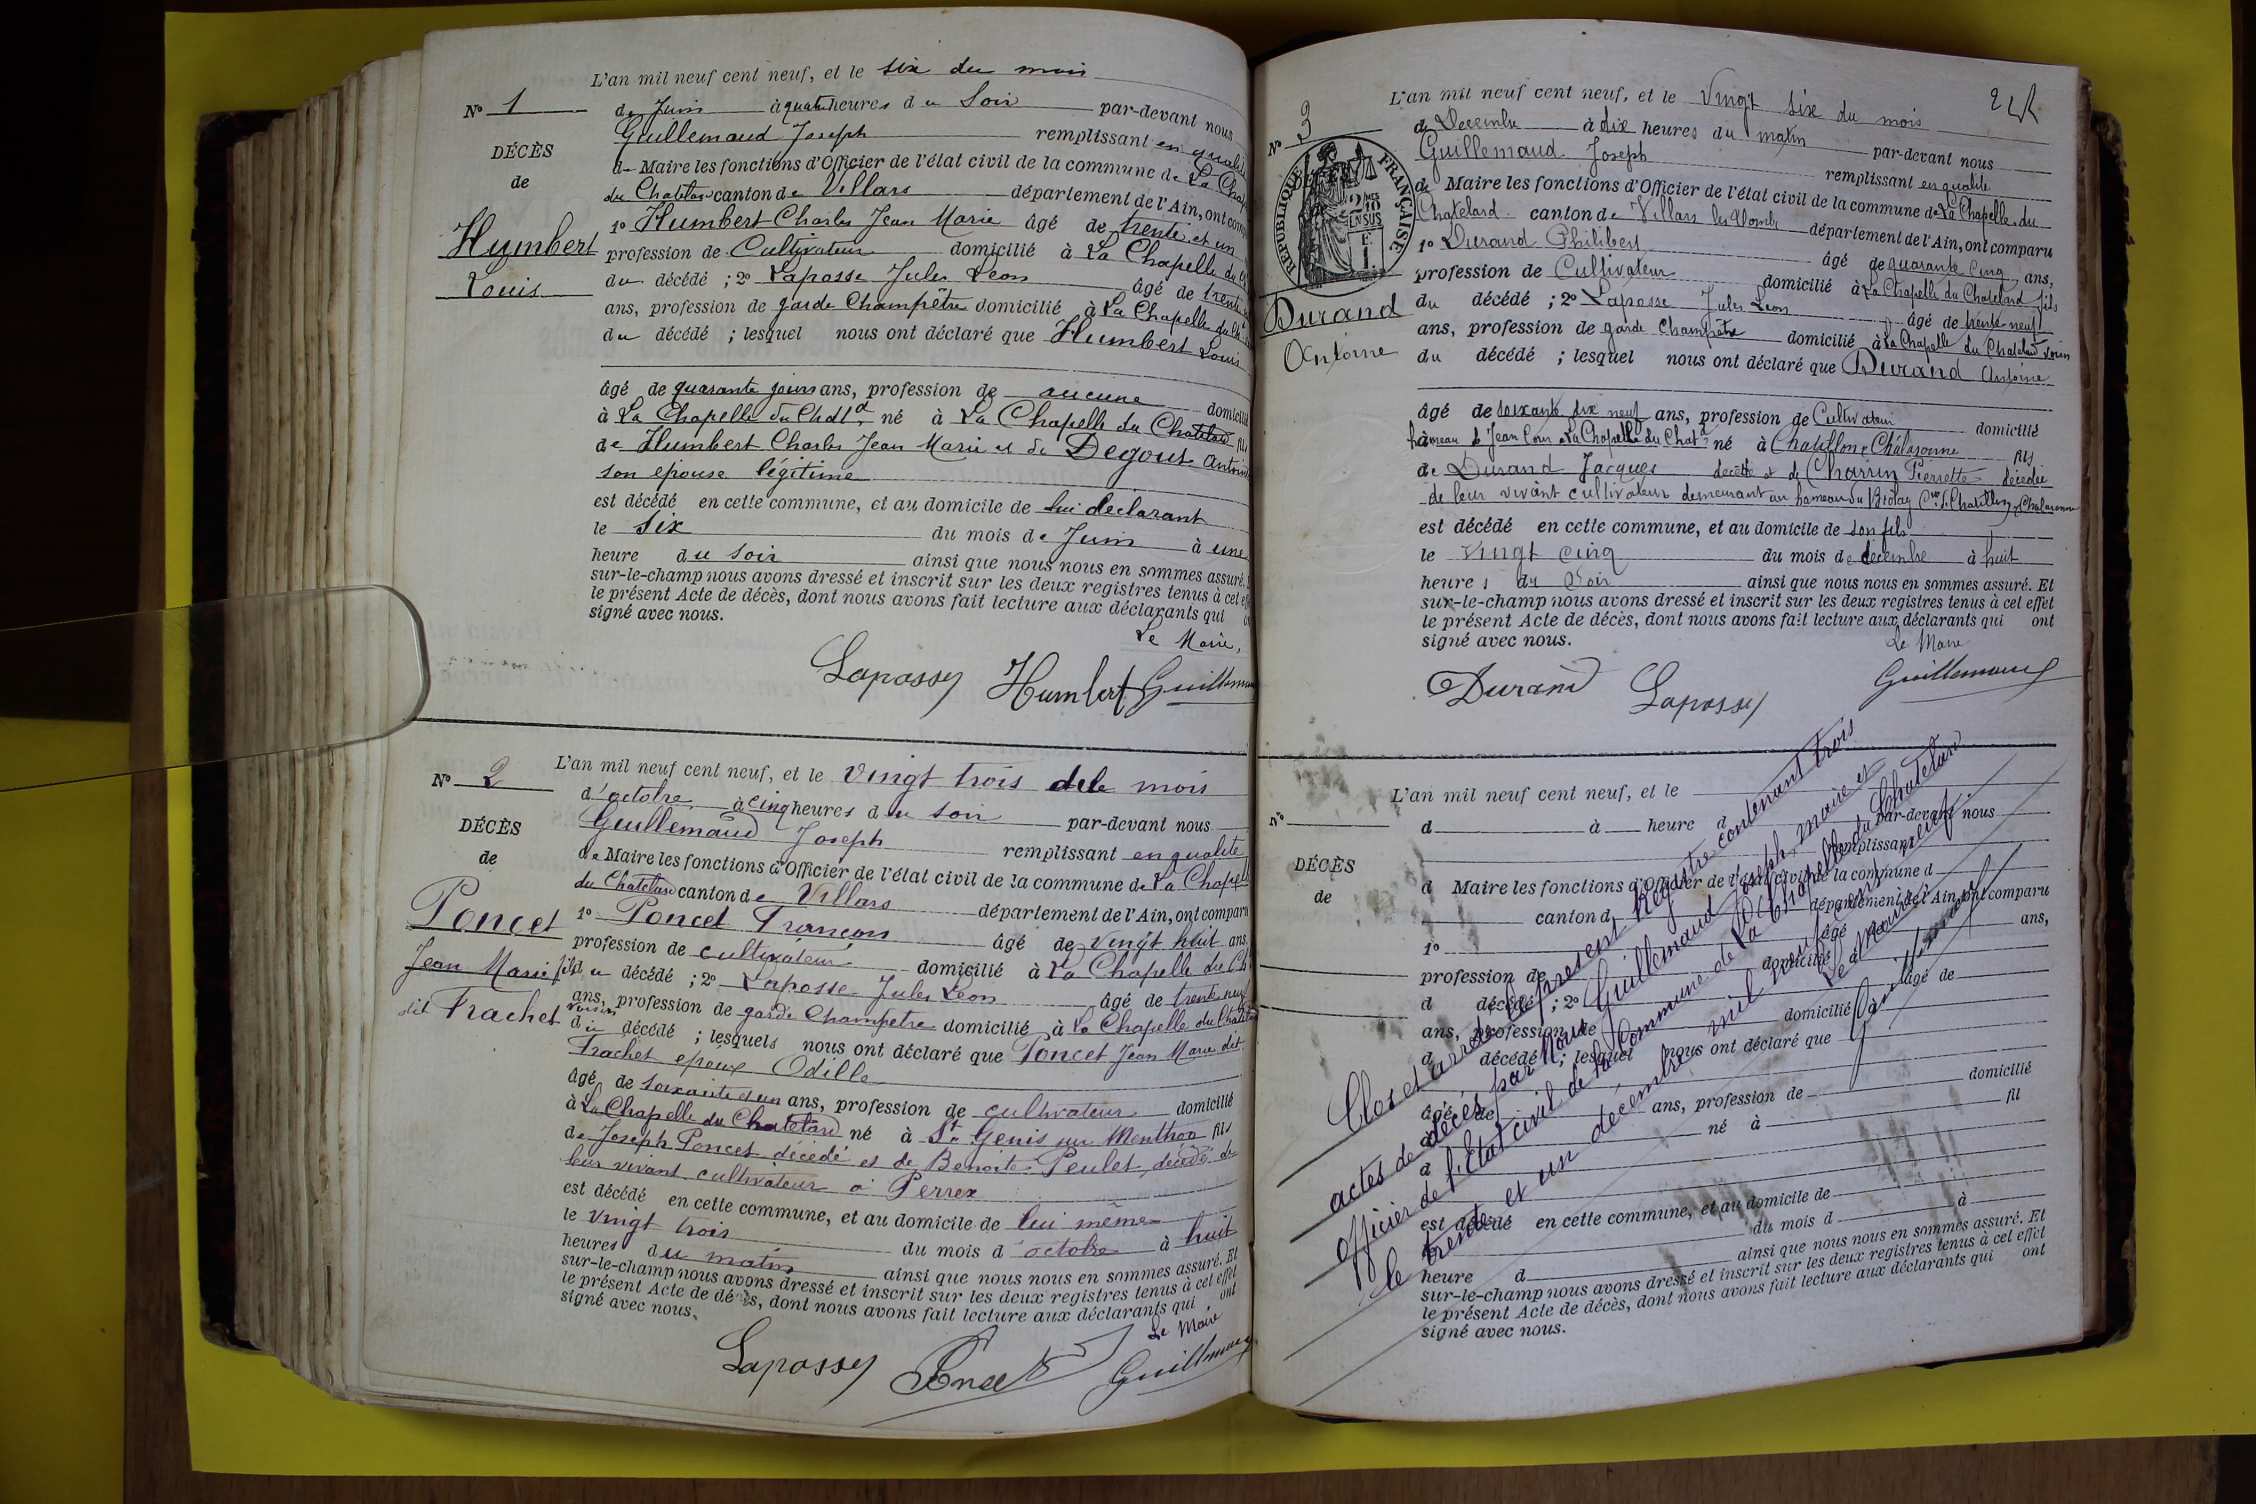 L'an mil neuf cent neuf, et le six du mois
No 1
de Juin à quatre heures du Soir par-devant nous
Guillemaud Joseph remplissant en qualité
DÉCÈS
de
de Maire les fonctions d'Officier de l'état civil de la commune de La Chap
du Chatelard canton de Villars département de l'Ain, ont comp
Humbert
Louis
1o Humbert Charles Jean Marie âgé de trente et un
profession de Cultivateur domicilié à La Chapelle du
du décédé ; 2o Laposse Jules Léon âgé de trente
ans, profession de garde Champêtre domicilié à La Chapelle du
du décédé ; lesquel nous ont déclaré que Humbert Louis
âgé de quarante jours ans, profession de aucune domicilié
à La Chapelle du Chatd, né à La Chapelle du Chatelard fils
de Humbert Charles Jean Marie et de Degout Antoin
son épouse légitime
est décédé en cette commune, et au domicile de lui déclarant
le Six du mois de Juin à une
heure du soir ainsi que nous nous en sommes assuré.
sur-le-champ nous avons dressé et inscrit sur les deux registres tenus à cet effe
le présent Acte de décès, dont nous avons fait lecture aux déclarants qui
signé avec nous.
Le Maire,
Laposse Humbert Guillemau
L'an mil neuf cent neuf, et le Vingt trois de le mois
No 2
d'octobre à cinq heures du soir par-devant nous
Guillemaud Joseph remplissant en qualité
DÉCÈS
de
de Maire les fonctions d'Officier de l'état civil de la commune de La Chapel
du Chatelard canton de Villars département de l'Ain, ont comparu
Poncet
Jean Marie
dit Frachet
1o Poncet François âgé de vingt huit ans,
profession de cultivateur domicilié à La Chapelle du Ch
fils du décédé ; 2o Laposse Jules Léon âgé de trente neuf
ans, profession de garde Champetre domicilié à La Chapelle du Chatelard
voisin du décédé ; lesquels nous ont déclaré que Poncet Jean Marie dit
Frachet époux Odille
âgé de soixante et un ans, profession de cultivateur domicilié
à La Chapelle du Chatelard né à St Genis sur Menthon fils
de Joseph Poncet décédé et de Benoite Peulet, décédé de
leur vivant cultivateur à Perrex
est décédé en cette commune, et au domicile de lui même
le vingt trois du mois d'octobre à huit
heures du matin ainsi que nous nous en sommes assuré. Et
sur-le-champ nous avons dressé et inscrit sur les deux registres tenus à cet effet
le présent Acte de décès, dont nous avons fait lecture aux déclarants qui ont
signé avec nous.
Le Maire
Laposse Poncet Guillemau
L'an mil neuf cent neuf, et le Vingt six du mois
No 3
de Décembre à dix heures du matin par-devant nous
Guillemaud Joseph remplissant en qualité
RÉPUBLIQUE FRANÇAISE
de Maire les fonctions d'Officier de l'état civil de la commune de La Chapelle du
Chatelard canton de Villars les Dombes département de l'Ain, ont comparu
1o Durand Philibert âgé de quarante cinq ans,
profession de Cultivateur domicilié à La Chapelle du Chatelard fils
Durand
Antoine
du décédé ; 2o Laposse Jules Léon âgé de trente neuf
ans, profession de garde Champêtre domicilié à La Chapelle du Chatelard voisin
du décédé ; lesquel nous ont déclaré que Durand Antoine
âgé de soixante dix neuf ans, profession de Cultivateur domicilié
hameau de Jean Cour à La Chapelle du Chatd né à Chatillon s Chalaronne fils
de Durand Jacques décédé et de Charrin Pierrette décédée
de leur vivant cultivateur demeurant au hameau du Chatillon s Chalaronne
est décédé en cette commune, et au domicile de son fils
le vingt cinq du mois de décembre à huit
heures du Soir ainsi que nous nous en sommes assuré. Et
sur-le-champ nous avons dressé et inscrit sur les deux registres tenus à cet effet
le présent Acte de décès, dont nous avons fait lecture aux déclarants qui ont
signé avec nous.
Le Maire
Durand Laposse Guillemaud
L'an mil neuf cent neuf, et le
No
d à heure d par-devant nous
remplissant
DÉCÈS
de
d Maire les fonctions d'Officier de l'état civil de la commune d
canton d département de l'Ain, ont comparu
1o âgé de ans,
profession de domicilié à
d décédé ; 2o âgé de
ans, profession de domicilié à
d décédé ; lesquel nous ont déclaré que
âgé de ans, profession de domicilié
à né à fil
d
est décédé en cette commune, et au domicile de
le du mois d à
heure d ainsi que nous nous en sommes assuré. Et
sur-le-champ nous avons dressé et inscrit sur les deux registres tenus à cet effet
le présent Acte de décès, dont nous avons fait lecture aux déclarants qui ont
signé avec nous.
Clos et arrêté le présent Registre contenant trois
actes de décès par Nous Guillemaud Joseph, maire et
officier de l'Etat civil de la Commune de La Chapelle du Chatelard
le trente et un décembre mil neuf cent neuf.
Le Maire
Guillemaud